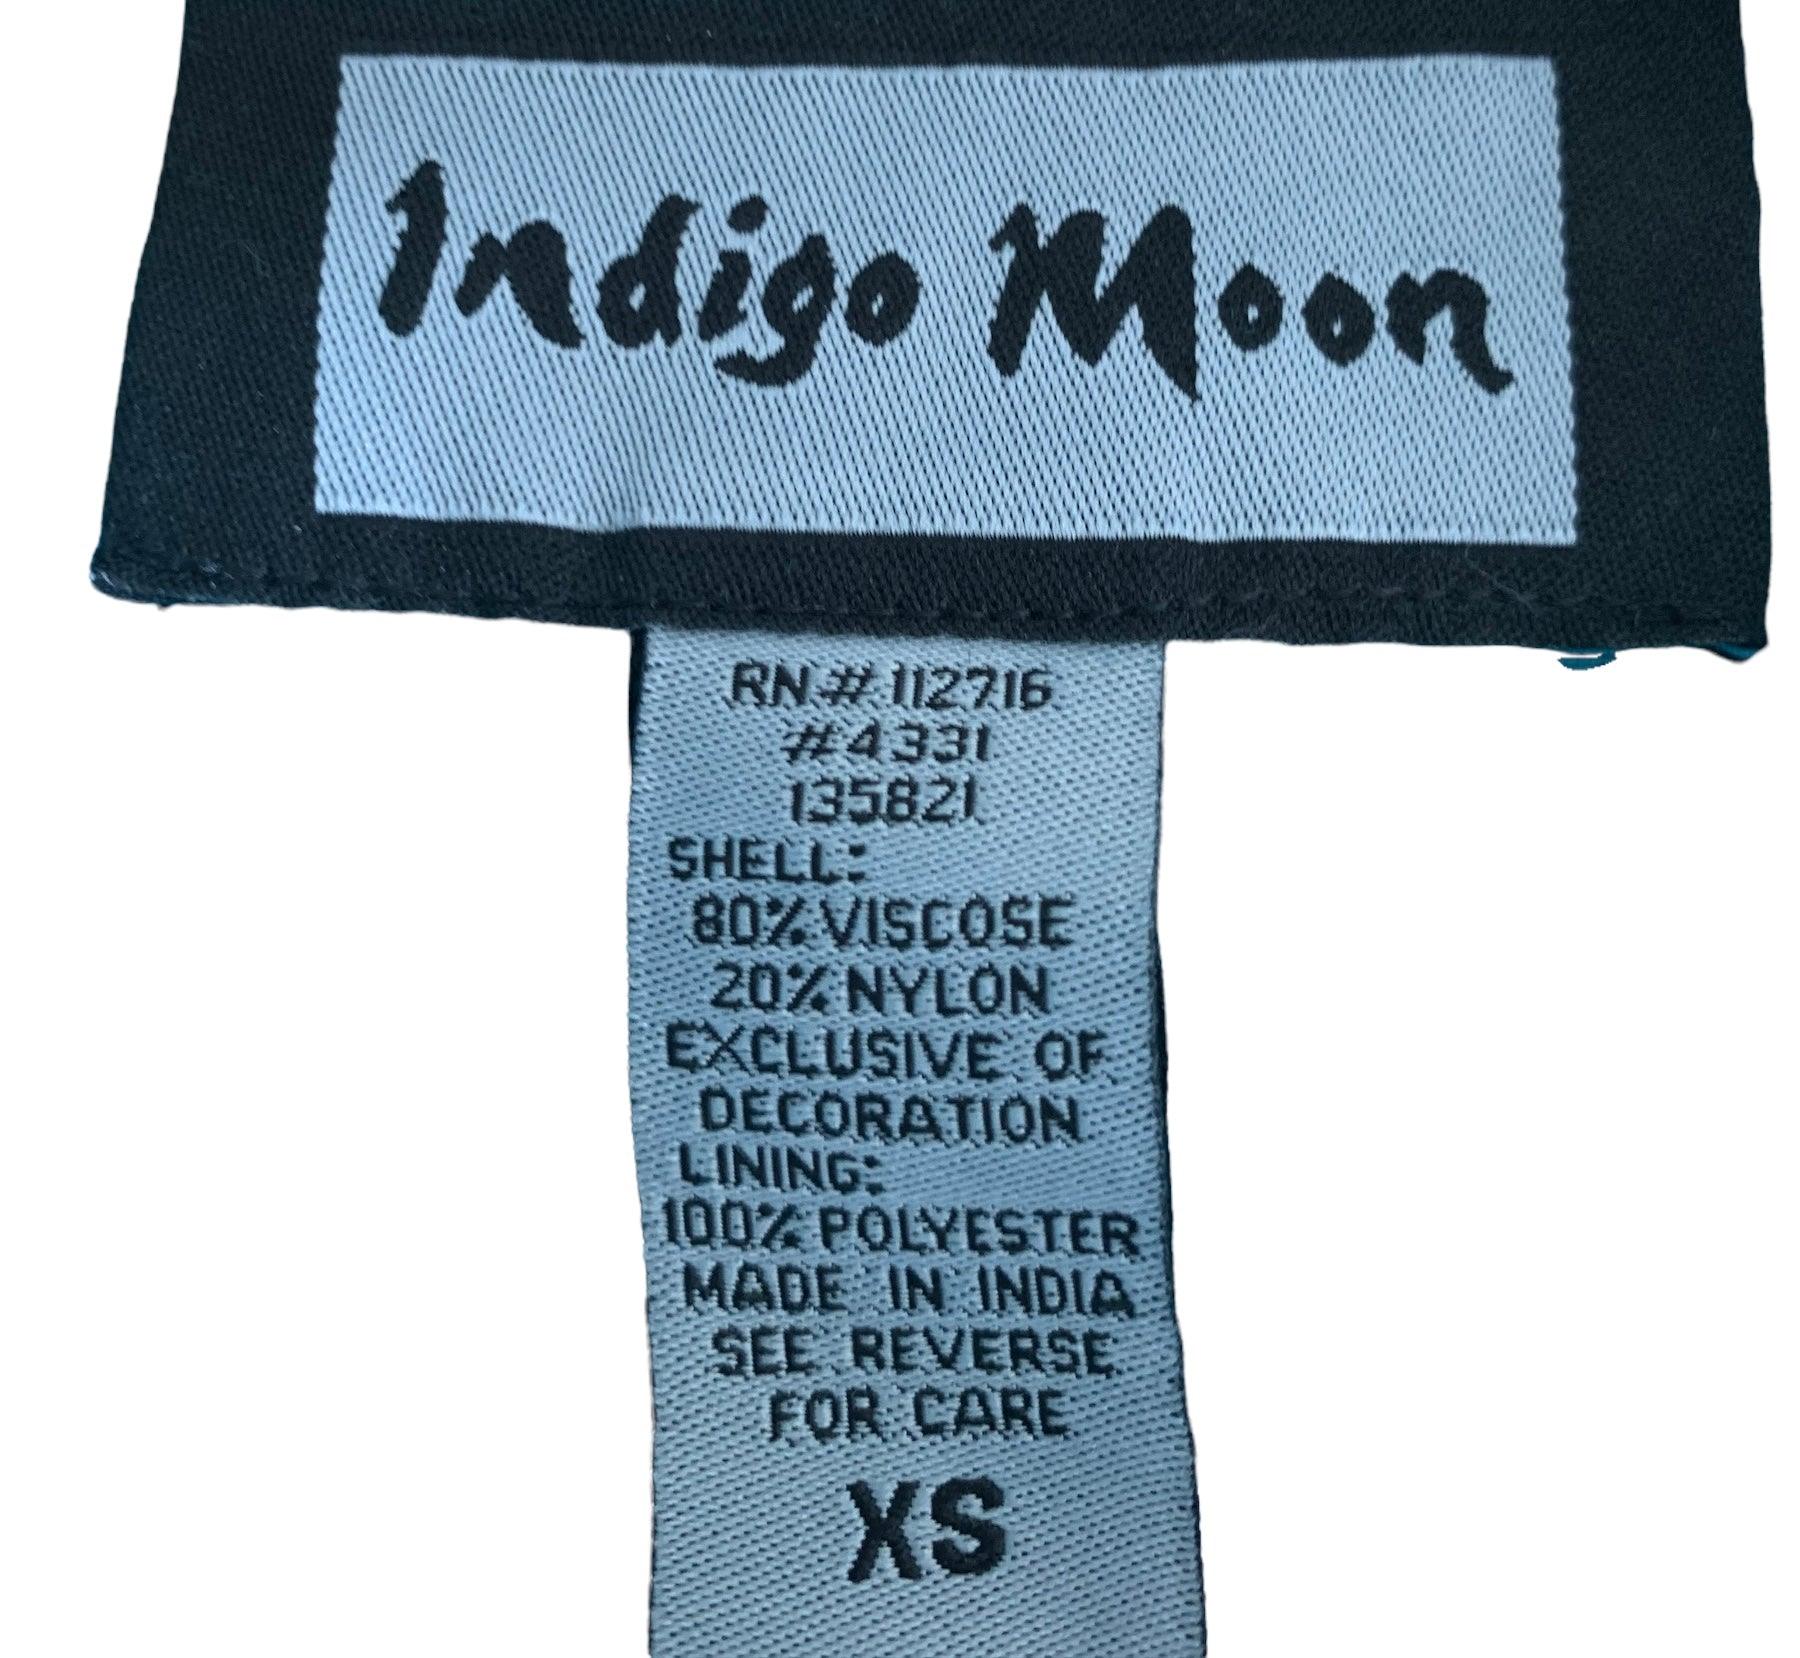 Indigo Moon
RN# 112716
#4331
135821
SHELL:
80% VISCOSE
20% NYLON
EXCLUSIVE OF
DECORATION
LINING:
100% POLYESTER
MADE IN INDIA
SEE REVERSE
FOR CARE
XS